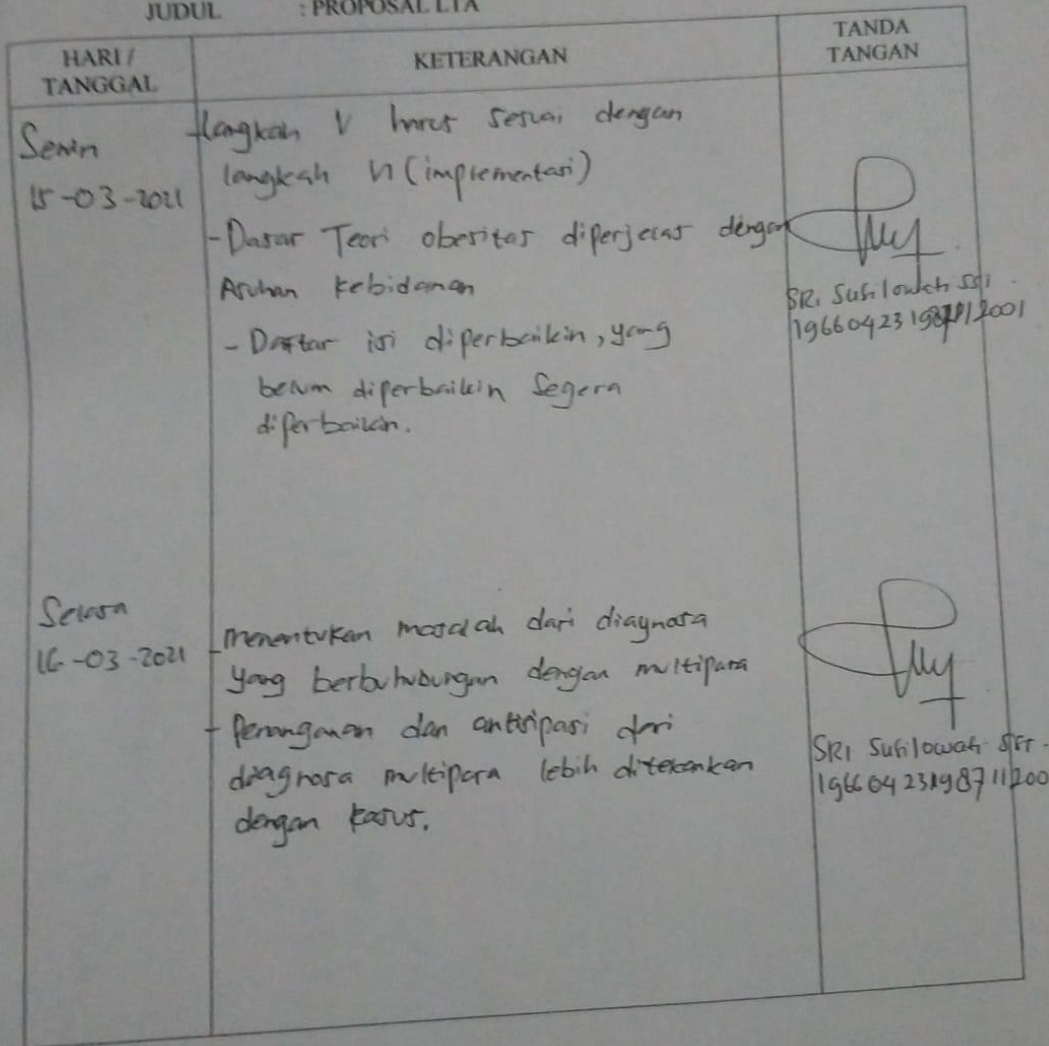 JUDUL : PROPOSAL LTA
HARI / TANGGAL
KETERANGAN
TANDA TANGAN
Senin
15-03-2021
-langkah V harus sesuai dengan
langkah VI (implementasi)
-Dasar Teori obesitas diperjelas dengan
Asuhan kebidanan
- Daftar isi diperbaikin, yang
belum diperbaikin segera
diperbaikin.
SRI Susilowati
Selasa
16-03-2021
-menentukan masalah dari diagnosa
yang berbuhubungan dengan multipara
- Penanganan dan antisipasi dari
diagnosa multipara lebih ditekankan
dengan kasus.
SRI Susilowati SST.
19660423198711200